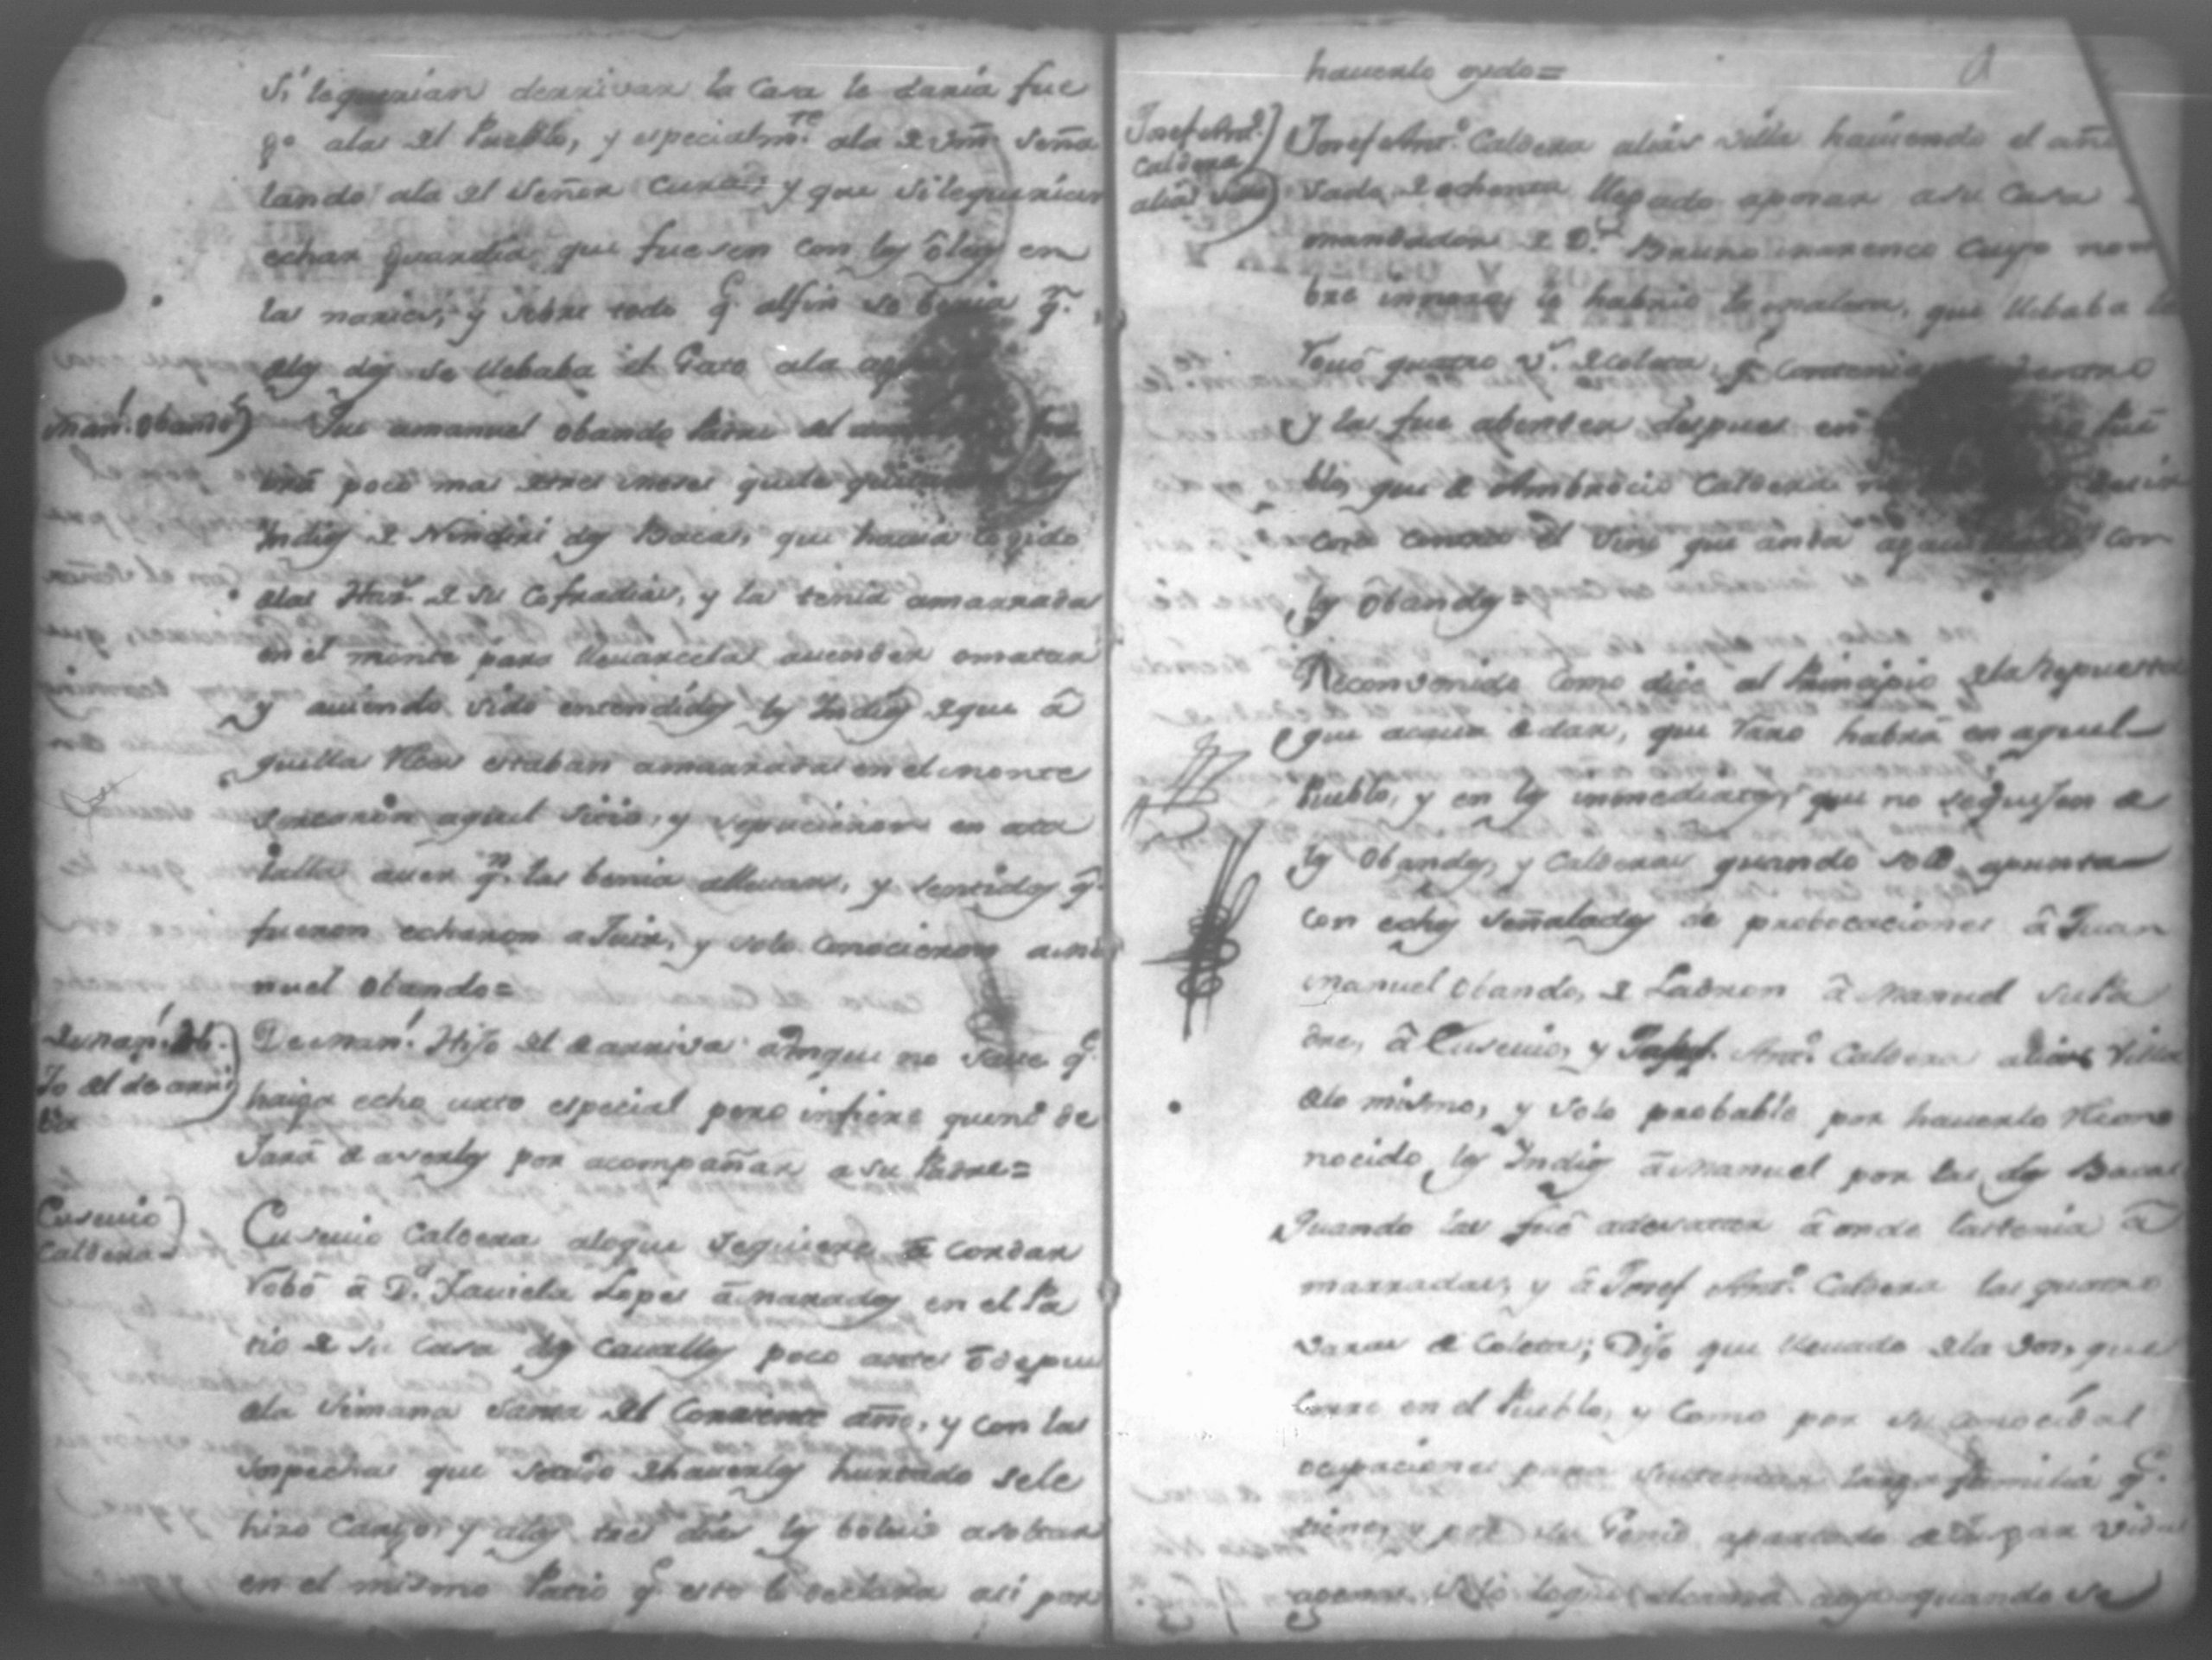 si le querian derrivar la Casa le daria fue
go alas del Pueblo, y especialmte. ala de Vm. seña
lando ala del Señor Cura, y que si le querian
echar guardia, que fuesen con los oleos en
las narices, y sobre todo q. al fin se benia q.
alos dos se llebaba el Gato ala
Man.l Obando) Que a manuel obando Padre del
brá poco mas de tres meses que le quitaron los
Indios de Nindiri dos Bacas, que havia cogido
alas Haz. de su Cofradia, y la tenia amarradas
en el monte para llevarcelas a vender o matar
y aviendo sido entendidos los Indios de que a
quellas Reses estaban amarradas en el monte
sercaron aquel sitio, y se pucieron en ata
lalla a ver q.n las benia allevar, y sentidos q.
fueron echaron a Juir, y solo conocieron a ma
nuel obando=
De man.l Hi
Jo del de arri
ba
De man.l Hijo del de arriva aunque no save q.
haiga echo urto especial pero infiere que no de
Jará de averlos por acompañar a su Padre=
Eusevio
Caldera
Eusevio Caldera aloque se quiere a cordar
robó a D.a Javiela Lopes amarrados en el Pa
tio de su Casa dos Cavallos poco antes o despues
dela Semana Santa del Corriente año, y con las
sospechas que se tubo de haverlos hurtado se le
hizo Cargo, y alos tres dias los bolvio a soltar
en el mismo Patio q. esto lo declara asi por
haverlo oydo=
Josef Ant.o
Caldera
alias Villa
Josef Ant.o Caldera alias Villa haviendo el año
sado de ochenta llegado aposar a su Casa
mandador de D.n Bruno Marenco cuyo nom
bre innora, le habrio la maleta, que llebaba le
rovó quatro v.s de coleta, q. contenia dentro
y las fue abender despues en Pue
blo, que de Ambrocio Caldera desir
como contra el Vini que anda con
los Obandos=
Reconvenido como dise al Principio dela repuesta
que acava de dar, que raro habrá en aquel
Pueblo, y en los inmediatos, que no se quejen de
los Obandos, y Calderas quando solo apunta
con echos señalados de probocaciones á Juan
Manuel Obando, de Ladron á Manuel su Pa
dre, á Eusevio, y Josef Ant.o Caldera alias Villa
de lo mismo, y solo probable por haverlo Recono
nocido los Indios á Manuel por las dos Bacas
quando las fué adesatar á onde lastenia a
marradas, y á Josef Ant.o Caldera las quatro
varas de Coleta; Dijo que llevado dela vos, que
corre en el Pueblo, y como por su
ocupaciones para sustentar larga familia q.
tiene, y por su Genio apartado vidas
agenas, solo loque quando se